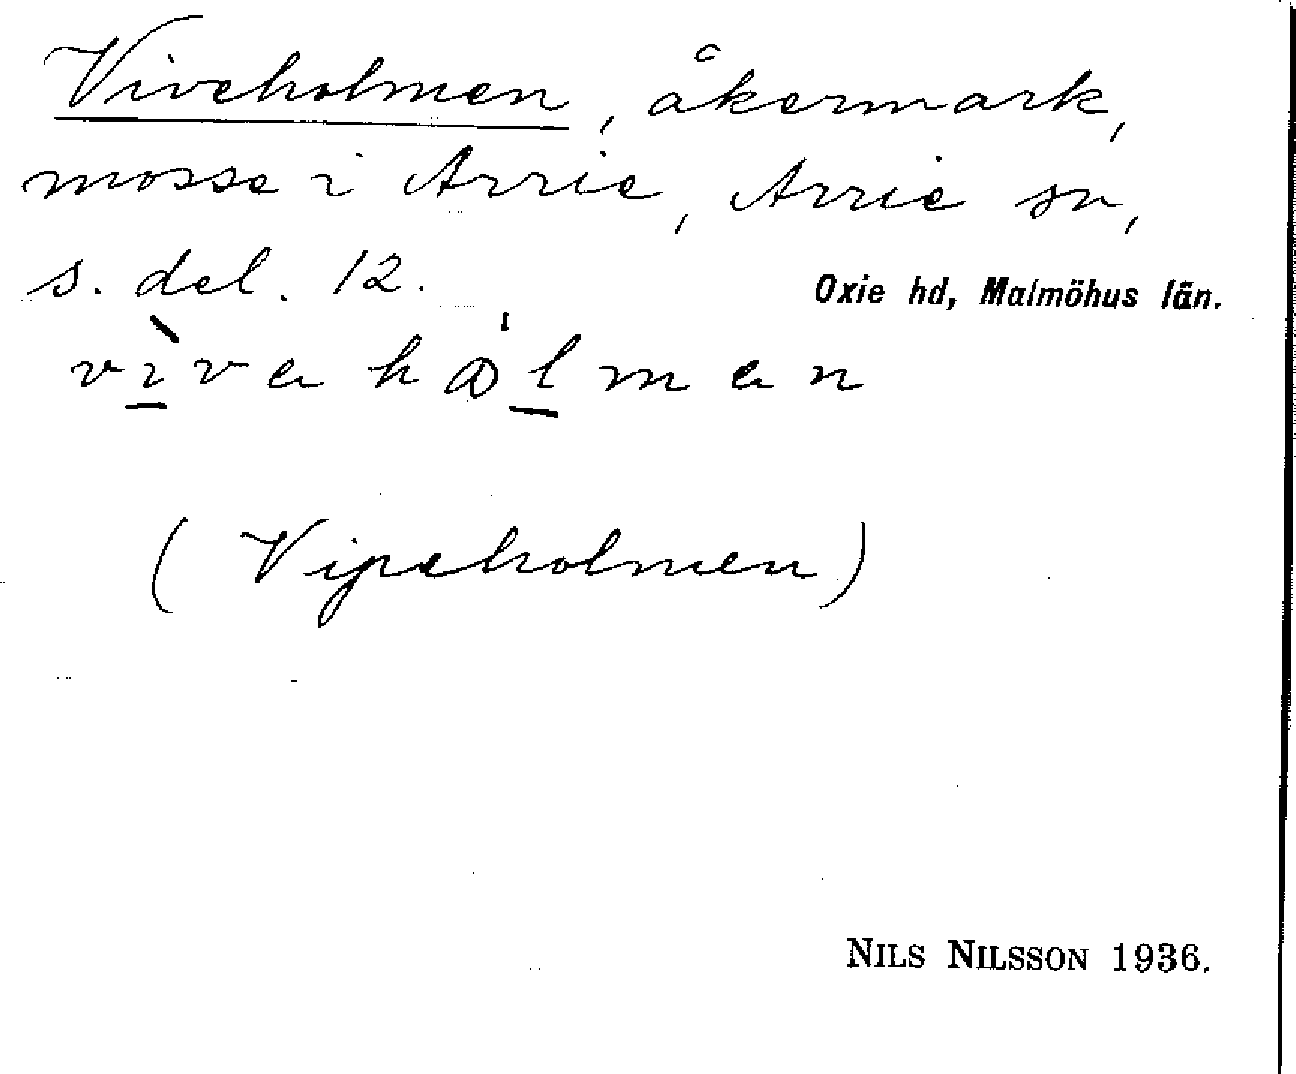 Viveholmen, åkermark,
mosse i Arrie, Arrie sn,
s. del. 12.
Oxie hd, Malmöhus län.
(Vipeholmen)
NILS NILSSON 1936.